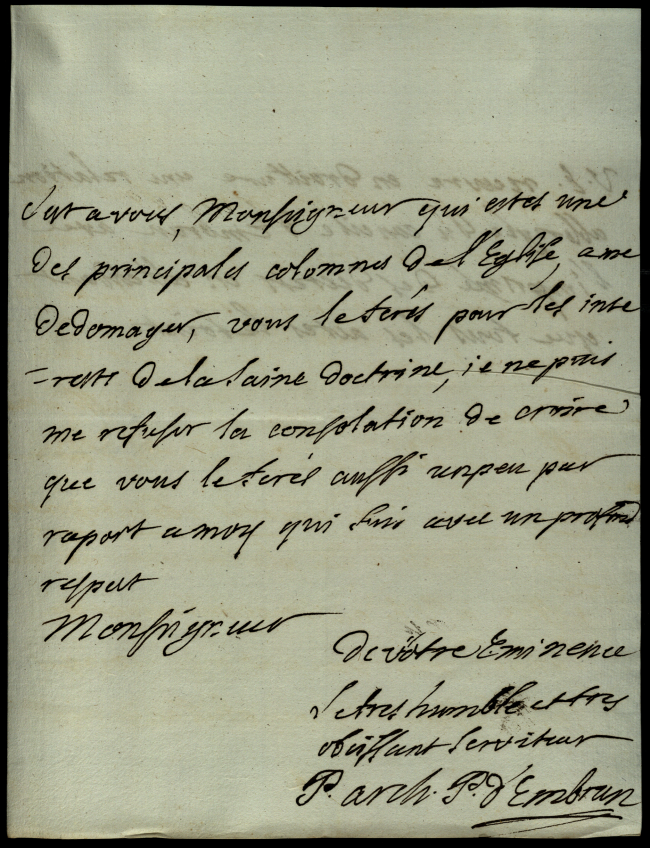 C'est a vous, Monseigneur qui estes une
des principales colomnes de l'Eglise, a me
dedomager, vous le ferés pour les inte
-rests de la saine doctrine, je ne puis
me refuser la consolation de croire
que vous le ferés aussi un peu par
raport a moy qui suis avec un profond
respect
Monseigneur
De vôtre Eminence
le tres humble et tres
obeissant serviteur
P. arch. P. d'Embrun